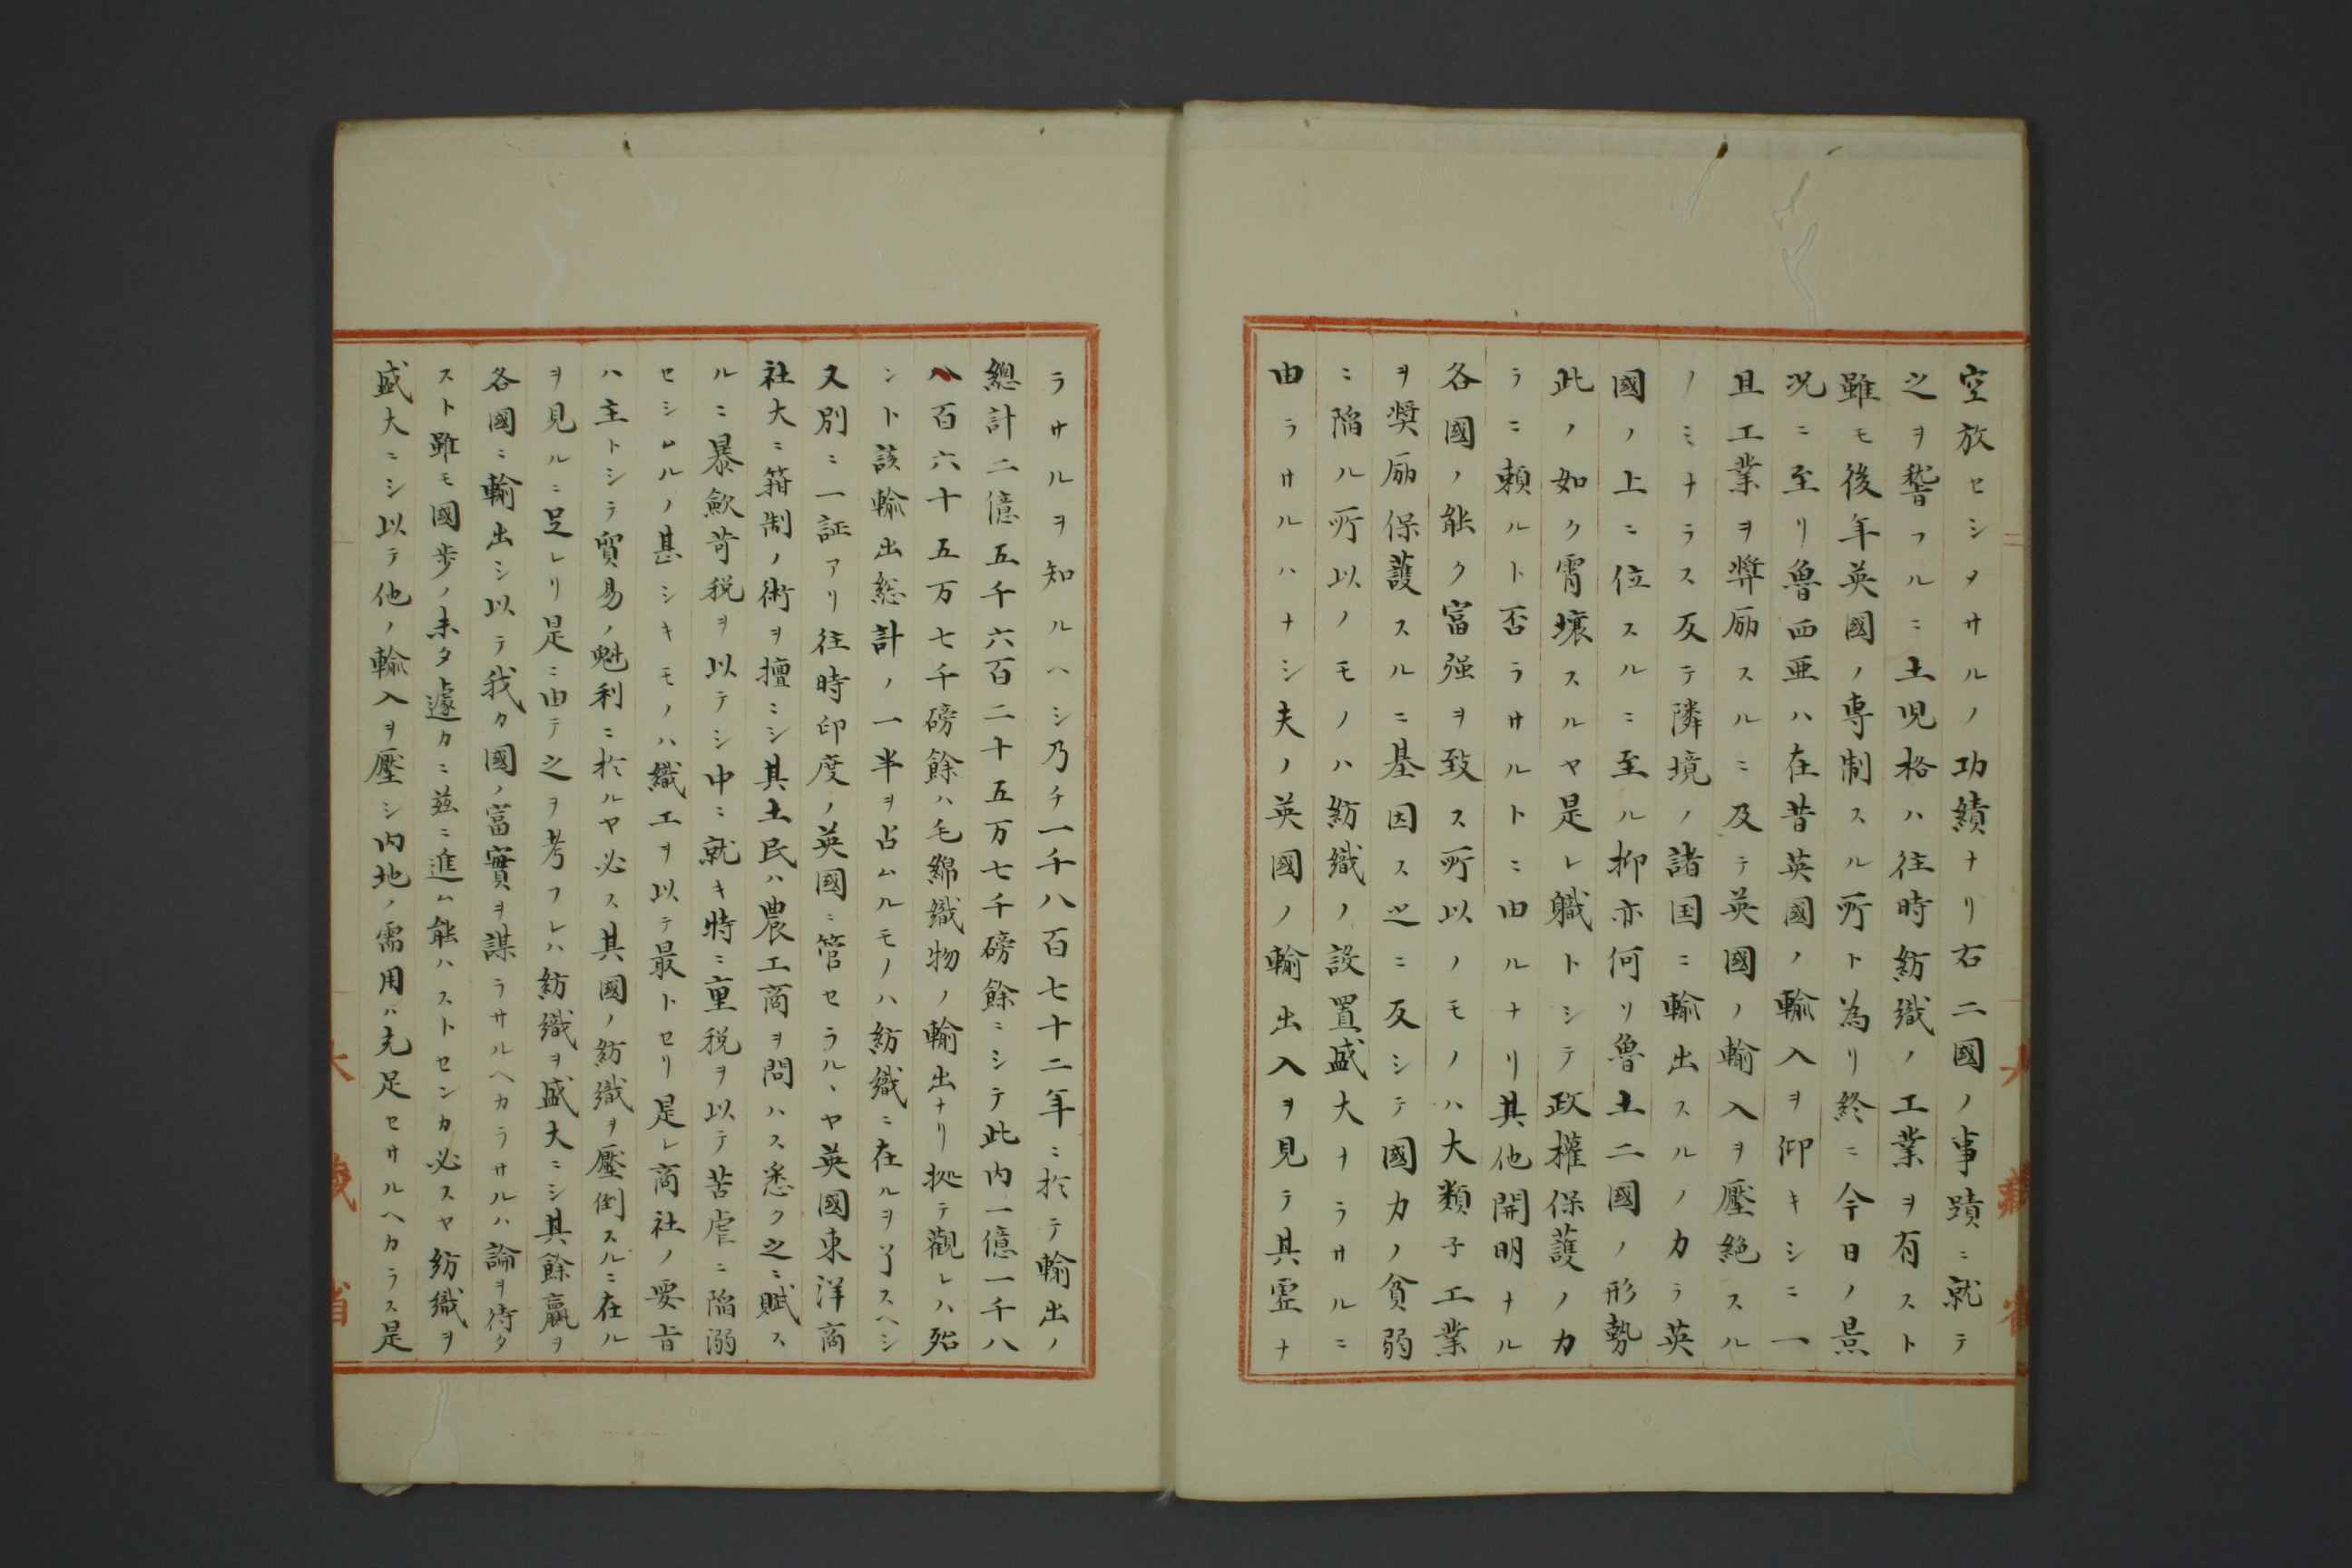 空放セシメサルノ功績ナリ右二國ノ事蹟ニ就テ
之ヲ嵆フルニ土児格ハ往時紡織ノ工業ヲ有スト
雖モ後年英國ノ専制スル所ト為リ終ニ今日ノ景
况ニ至リ魯西亜ハ在昔英國ノ輸入ヲ仰キシニ一
且工業ヲ奨励スルニ及テ英國ノ輸入ヲ壓絶スル
ノミナラス反テ隣境ノ諸国ニ輸出スルノ力ラ英
國ノ上ニ位スルニ至ル抑亦何リ魯土二國ノ形勢
此ノ如ク霄壌スルヤ是レ職トシテ政權保護ノ力
ラニ頼ルト否ラサルトニ由ルナリ其他開明ナル
各國ノ能ク富强ヲ致ス所以ノモノハ大類子工業
ヲ奨励保護スルニ基因ス之ニ反シテ國力ノ貧弱
ニ陷ル所以ノモノハ紡織ノ設置盛大ナラサルニ
由ラサルハナシ夫ノ英國ノ輸出入ヲ見テ其虚ナ
ラサルヲ知ルヘシ乃チ一千八百七十二年ニ於テ輸出ノ
總計二億五千六百二十五万七千磅餘ニシテ此内一億一千八
八百六十五万七千磅餘ハ毛綿織物ノ輸出ナリ拠テ觀レハ殆
ント該輸出総計ノ一半ヲ占ムルモノハ紡織ニ在ルヲ了スヘシ
又別ニ一証アリ往時印度ノ英國ニ管セラルヽヤ英國東洋商
社大ニ箝制ノ術ヲ擅ニシ其土民ハ農工商ヲ問ハス悉ク之ニ賦ス
ルニ暴歛苛税ヲ以テシ中ニ就キ特ニ重税ヲ以テ苦虐ニ陷溺
セシムルノ甚シキモノハ織工ヲ以テ最トセリ是レ商社ノ要旨
ハ主トシテ貿易ノ魁利ニ於ルヤ必ス其國ノ紡織ヲ壓倒スルニ在ル
ヲ見ルニ足レリ是ニ由テ之ヲ考フレハ紡織ヲ盛大ニシ其餘贏ヲ
各國ニ輸出シ以テ我カ國ノ富實ヲ謀ラサルヘカラサルハ論ヲ待タ
スト雖モ國歩ノ未タ遽カニ茲ニ進ム能ハストセンカ必スヤ紡織ヲ
盛大ニシ以テ他ノ輸入ヲ壓シ内地ノ需用ハ充足セサルヘカラス是
大藏省